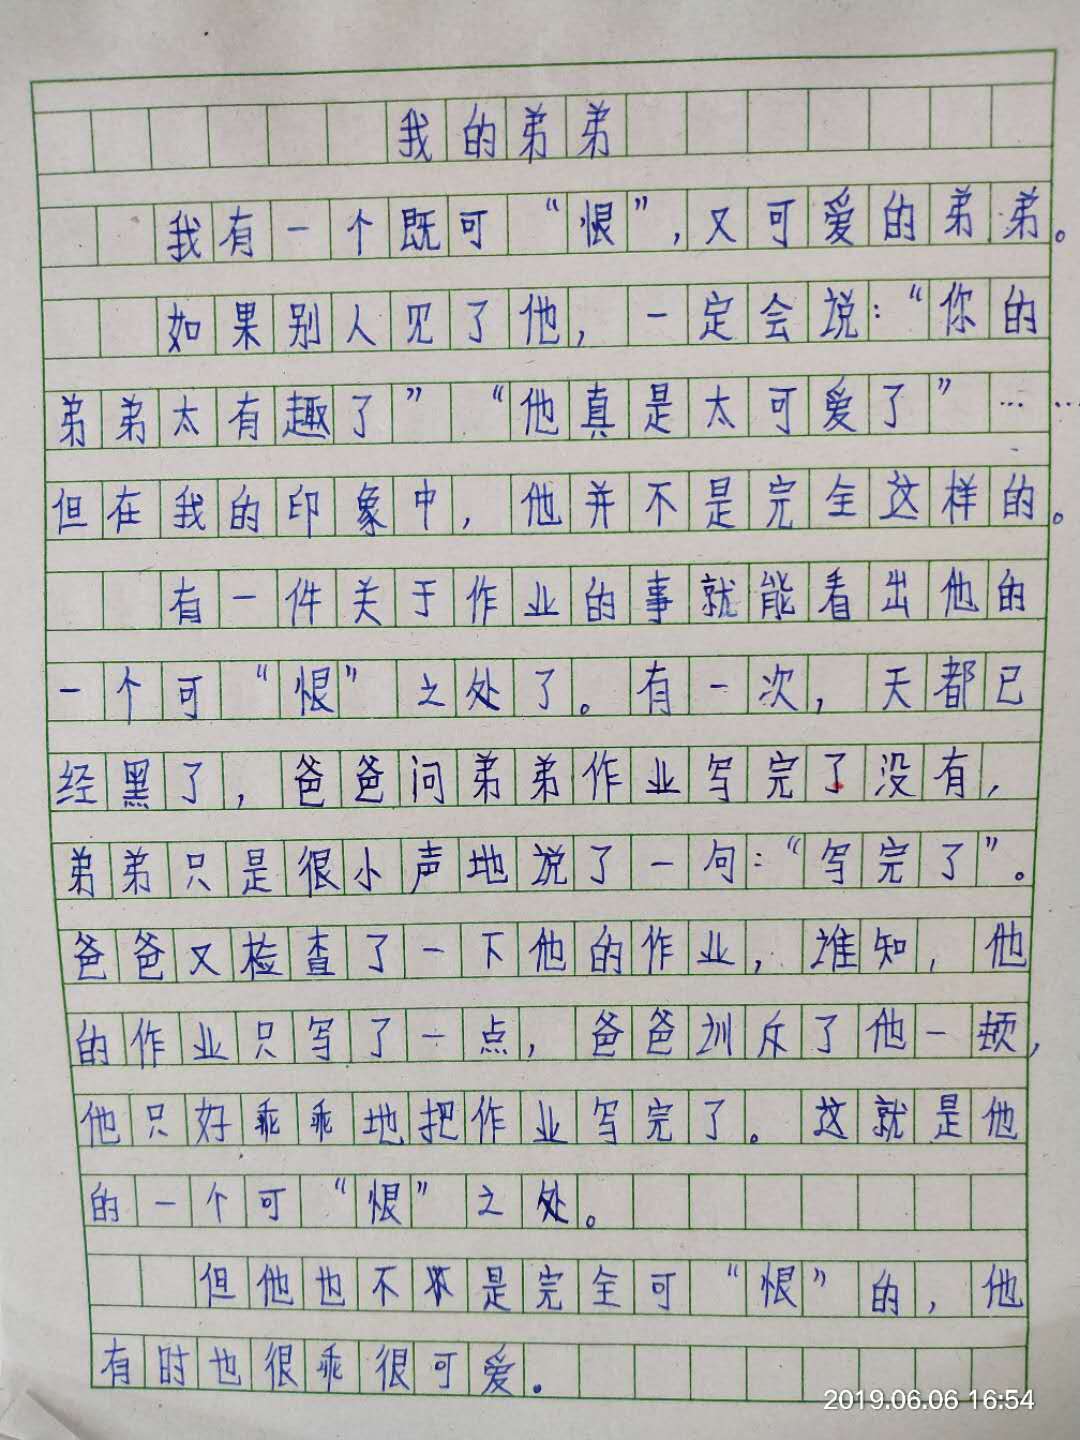 我的弟弟
我有一个既可“恨”,又可爱的弟弟。
如果别人见了他,一定会说:“你的
弟弟太有趣了”“他真是太可爱了”……
但在我的印象中,他并不是完全这样的。
有一件关于作业的事就能看出他的
一个可“恨”之处了。有一次,天都已
经黑了,爸爸问弟弟作业写完了没有,
弟弟只是很小声地说了一句:“写完了”。
爸爸又检查了一下他的作业,谁知,他
的作业只写了一点,爸爸训斥了他一顿,
他只好乖乖地把作业写完了。这就是他
的一个可“恨”之处。
但他也不是完全可“恨”的,他
有时也很乖很可爱.
2019.06.06 16:54